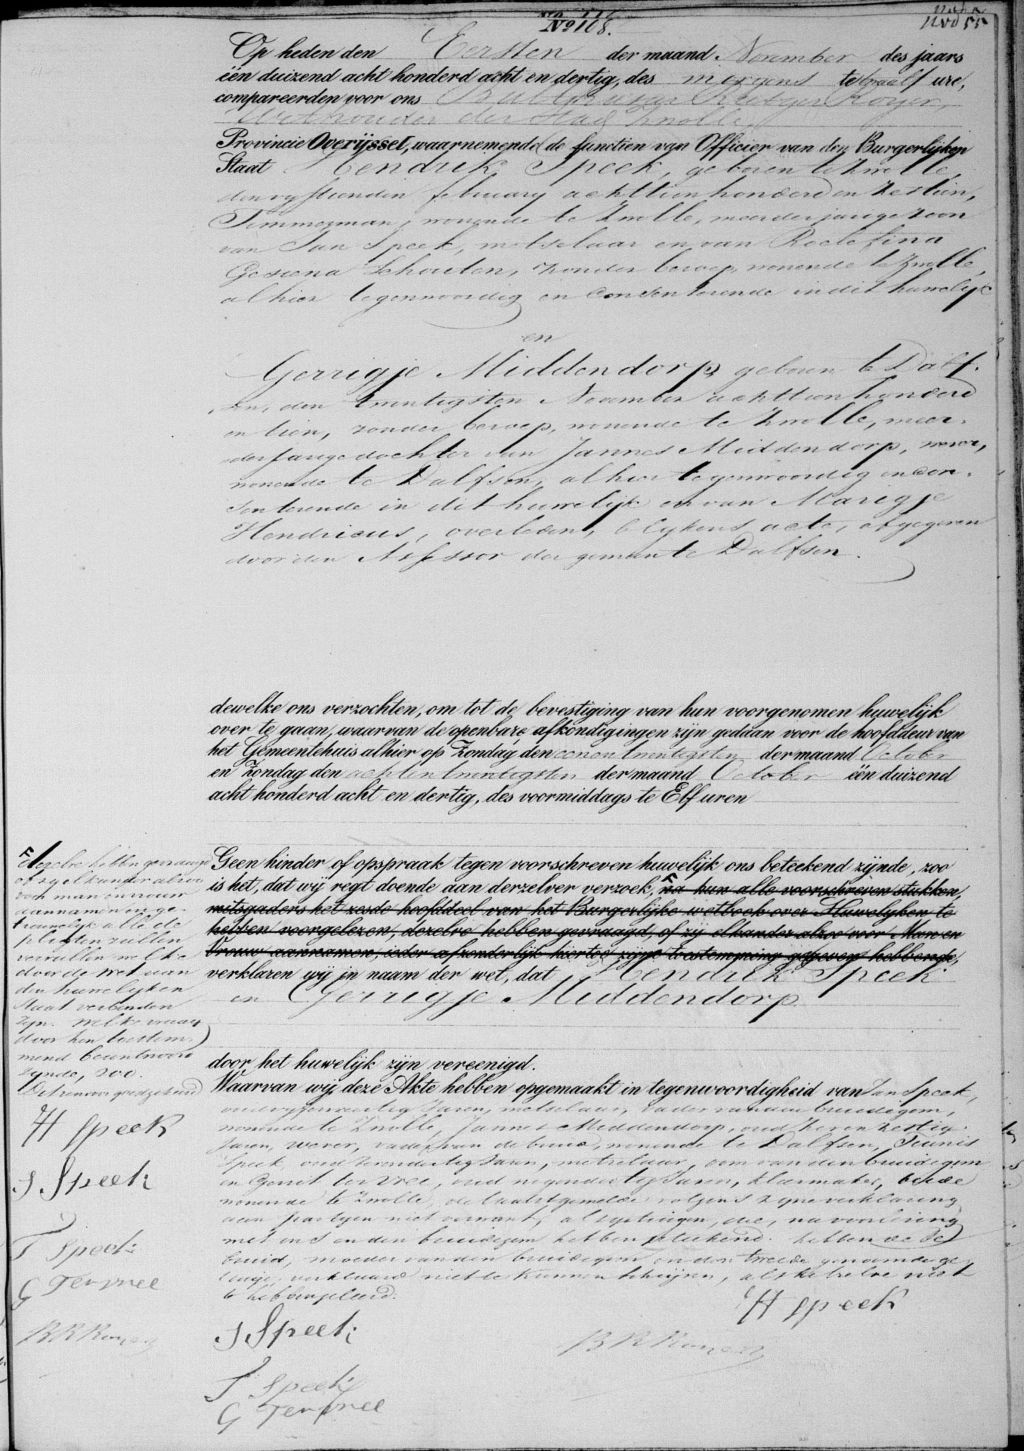 No 118.
Op heden den Eersten der maand November des jaars
één duizend acht honderd acht en dertig, des morgens te twaalf ure,
compareerden voor ons Rutger Royer,
Wethouder der Stad Zwolle,
Provincie Overijssel, waarnemende de functien van Officier van den Burgerlyken
Staat Hendrik Speek, geboren te Zwolle,
den vyftienden february achttienhonderd en zestien,
Timmerman, wonende te Zwolle, meerderjarige zoon
van Jan Speek, metselaar en van Roelefina
Gesiena Schouten, zonder beroep, wonende te Zwolle,
alhier tegenwoordig en consenterende in dit huwelijk
en
Gerrigje Middendorp geboren te Dalf-
sen, den twentigsten November achttienhonderd
en tien, zonder beroep, wonende te Zwolle, meer-
derjarige dochter van Jannes Middendorp, wever,
wonende te Dalfsen, alhier tegenwoordig en con-
senterende in dit huwelijk en van Marigje
Hendricus, overleden, blykens acte, afgegeven
door den Assessor der gemeente Dalfsen.
dewelke ons verzochten, om tot de bevestiging van hun voorgenomen huwelijk
over te gaan, waarvan de openbare afkondigingen zijn gedaan voor de hoofddeur van
het Gemeentehuis alhier op Zondag den eenentwentigsten der maand October
en Zondag den achtentwentigsten der maand October één duizend
acht honderd acht en dertig, des voormiddags te Elf uren
Geen hinder of opspraak tegen voorschreven huwelijk ons beteekend zijnde, zoo
is het, dat wij regt doende aan derzelver verzoek, na hun alle voorschreven stukken,
mitsgaders het zesde hoofddeel van het Burgerlijke wetboek over Huwelyken te
hebben voorgelezen, dezelve hebben gevraagd, of zij elkander alzoo voor Man en
Vrouw aannamen, ieder afzonderlijk hiertoe zijne toestemming gegeven hebbende,
verklaren wij in naam der wet, dat Hendrik Speek
en Gerrigje Middendorp
door het huwelijk zijn vereenigd.
Waarvan wij deze Akte hebben opgemaakt in tegenwoordigheid van Jan Speek,
oud vyfenveertig Jaren, metselaar, vader van den bruidegom,
wonende te Zwolle, Jannes Middendorp, oud zevenzestig
Jaren, wever, vader van de bruid, wonende te Dalfsen, Teunis
Speek, oud dertig Jaren, metselaar, oom van den bruidegom
en Gerrit ter Vree, oud negendertig Jaren, kleermaker, beide
wonende te Zwolle, de laatstgemelde volgens zyne verklaring
aan partyen niet verwant, als getuigen, die, na voorlezing
met ons en den bruidegom hebben geteekend. hebbende de
bruid, moeder van den bruidegom en den tweede genoemde ge-
tuige, verklaard niet te kunnen schrijven, als hetzelve niet
te hebben geleerd.
H Speek
J Speek
B R Royer
T Speek
G Tervree
dezelve hebben gevraagd
of zy elkander alzoo
voor man en vrouw
aannamen en ge-
trouwelyk alle de
pligten zullen
vervullen welke
door de wet aan
den huwelyken
Staat verbonden
zyn. welke vraag
door hen toestem-
mend beantwoord
zynde, zoo.
Het renvooi goedgekeurd
H Speek
J Speek
T Speek
G Tervree
B R Royer